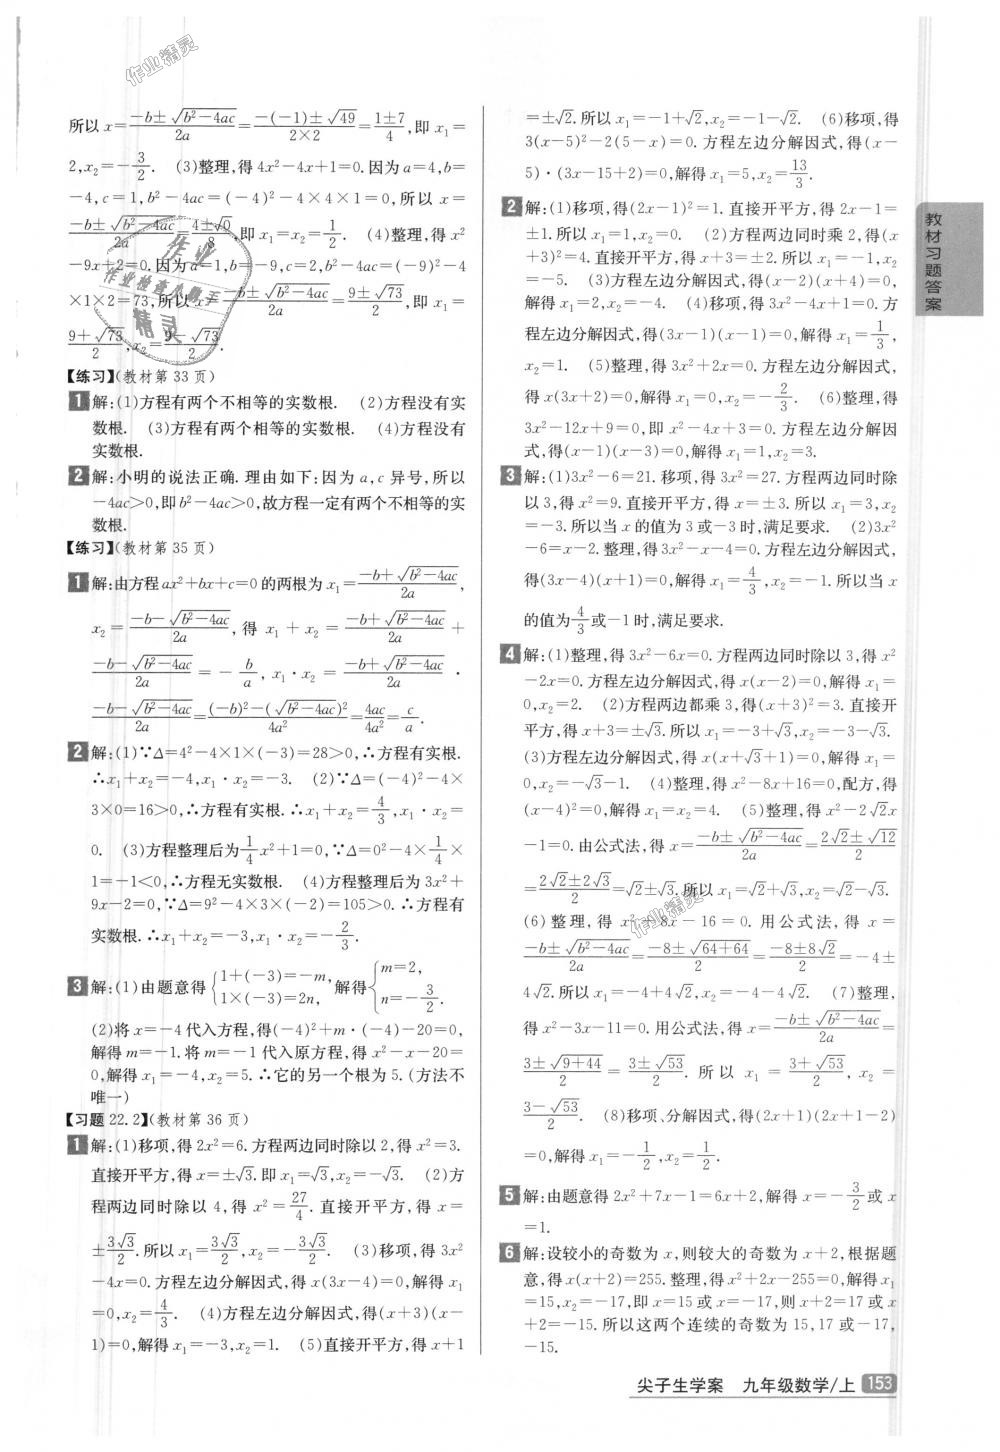 所以 x=(-b±√(b²-4ac))/2a=(-(-1)±√49)/(2×2)=(1±7)/4,即 x₁=
2,x₂=-3/2. (3)整理,得 4x²-4x+1=0.因为 a=4,b=
-4,c=1,b²-4ac=(-4)²-4×4×1=0,所以 x=
(-b±√(b²-4ac))/2a=(4±√0)/8,即 x₁=x₂=1/2. (4)整理,得 x²
-9x+2=0.因为 a=1,b=-9,c=2,b²-4ac=(-9)²-4
×1×2=73,所以 x=(-b±√(b²-4ac))/2a=(9±√73)/2,即 x₁=
(9+√73)/2,x₂=(9-√73)/2.
【练习】(教材第 33 页)
1 解:(1)方程有两个不相等的实数根. (2)方程没有实
数根. (3)方程有两个相等的实数根. (4)方程没有
实数根.
2 解:小明的说法正确.理由如下:因为 a,c 异号,所以
-4ac>0,即 b²-4ac>0,故方程一定有两个不相等的实
数根.
【练习】(教材第 35 页)
1 解:由方程 ax²+bx+c=0 的两根为 x₁=(-b+√(b²-4ac))/2a,
x₂=(-b-√(b²-4ac))/2a,得 x₁+x₂=(-b+√(b²-4ac))/2a+
(-b-√(b²-4ac))/2a=-b/a,x₁·x₂=(-b+√(b²-4ac))/2a·
(-b-√(b²-4ac))/2a=((-b)²-(√(b²-4ac))²)/4a²=4ac/4a²=c/a.
2 解:(1)∵Δ=4²-4×1×(-3)=28>0,∴方程有实根.
∴x₁+x₂=-4,x₁·x₂=-3. (2)∵Δ=(-4)²-4×
3×0=16>0,∴方程有实根.∴x₁+x₂=4/3,x₁·x₂=
0. (3)方程整理后为1/4x²+1=0,∵Δ=0²-4×1/4×
1=-1<0,∴方程无实数根. (4)方程整理后为 3x²+
9x-2=0,∵Δ=9²-4×3×(-2)=105>0.∴方程有
实数根.∴x₁+x₂=-3,x₁x₂=-2/3.
3 解:(1)由题意得{1+(-3)=-m, 1×(-3)=2n, 解得{m=2, n=-3/2.
(2)将 x=-4 代入方程,得(-4)²+m·(-4)-20=0,
解得 m=-1.将 m=-1 代入原方程,得 x²-x-20=
0,解得 x₁=-4,x₂=5.∴它的另一个根为 5.(方法不
唯一)
【习题 22.2】(教材第 36 页)
1 解:(1)移项,得 2x²=6.方程两边同时除以 2,得 x²=3.
直接开平方,得 x=±√3.即 x₁=√3,x₂=-√3. (2)方
程两边同时除以 4,得 x²=27/4.直接开平方,得 x=
±3√3/2.所以 x₁=3√3/2,x₂=-3√3/2. (3)移项,得 3x²
-4x=0.方程左边分解因式,得 x(3x-4)=0,解得 x₁
=0,x₂=4/3. (4)方程左边分解因式,得(x+3)(x-
1)=0,解得 x₁=-3,x₂=1. (5)直接开平方,得 x+1
=±√2.所以 x₁=-1+√2,x₂=-1-√2. (6)移项,得
3(x-5)²-2(5-x)=0.方程左边分解因式,得(x-
5)·(3x-15+2)=0,解得 x₁=5,x₂=13/3.
2 解:(1)移项,得(2x-1)²=1.直接开平方,得 2x-1=
±1.所以 x₁=1,x₂=0. (2)方程两边同时乘 2,得(x
+3)²=4.直接开平方,得 x+3=±2.所以 x₁=-1,x₂
=-5. (3)方程左边分解因式,得(x-2)(x+4)=0,
解得 x₁=2,x₂=-4. (4)移项,得 3x²-4x+1=0.方
程左边分解因式,得(3x-1)(x-1)=0,解得 x₁=1/3,
x₂=1. (5)整理,得 3x²+2x=0.方程左边分解因式,
得 x(3x+2)=0,解得 x₁=0,x₂=-2/3. (6)整理,得
3x²-12x+9=0,即 x²-4x+3=0.方程左边分解因
式,得(x-1)(x-3)=0,解得 x₁=1,x₂=3.
3 解:(1)3x²-6=21.移项,得 3x²=27.方程两边同时除
以 3,得 x²=9.直接开平方,得 x=±3.所以 x₁=3,x₂
=-3.所以当 x 的值为 3 或-3 时,满足要求. (2)3x²
-6=x-2.整理,得 3x²-x-4=0.方程左边分解因式,
得(3x-4)(x+1)=0,解得 x₁=4/3,x₂=-1.所以当 x
的值为4/3或-1 时,满足要求.
4 解:(1)整理,得 3x²-6x=0.方程两边同时除以 3,得 x²
-2x=0.方程左边分解因式,得 x(x-2)=0,解得 x₁=
0,x₂=2. (2)方程两边都乘 3,得(x+3)²=3.直接开
平方,得 x+3=±√3.所以 x₁=-3+√3,x₂=-3-√3.
(3)方程左边分解因式,得 x(x+√3+1)=0,解得 x₁=
0,x₂=-√3-1. (4)整理,得 x²-8x+16=0,配方,得
(x-4)²=0,解得 x₁=x₂=4. (5)整理,得 x²-2√2x
-1=0.由公式法,得 x=(-b±√(b²-4ac))/2a=(2√2±√12)/2
=(2√2±2√3)/2=√2±√3.所以 x₁=√2+√3,x₂=√2-√3.
(6)整理,得 x²+8x-16=0.用公式法,得 x=
(-b±√(b²-4ac))/2a=(-8±√(64+64))/2=(-8±8√2)/2=-4±
4√2.所以 x₁=-4+4√2,x₂=-4-4√2. (7)整理,
得 x²-3x-11=0.用公式法,得 x=(-b±√(b²-4ac))/2a=
(3±√(9+44))/2=(3±√53)/2.所以 x₁=(3+√53)/2,x₂=
(3-√53)/2. (8)移项、分解因式,得(2x+1)(2x+1-2)
=0,解得 x₁=-1/2,x₂=1/2.
5 解:由题意得 2x²+7x-1=6x+2,解得 x=-3/2或 x
=1.
6 解:设较小的奇数为 x,则较大的奇数为 x+2,根据题
意,得 x(x+2)=255.整理,得 x²+2x-255=0,解得 x₁
=15,x₂=-17,即 x=15 或 x=-17,则 x+2=17 或 x
+2=-15.所以这两个连续的奇数为 15,17 或-17,
-15.
教材习题答案
尖子生学案 九年级数学/上 153
作业精灵
作业
作业检查小助手
精灵
作业精灵